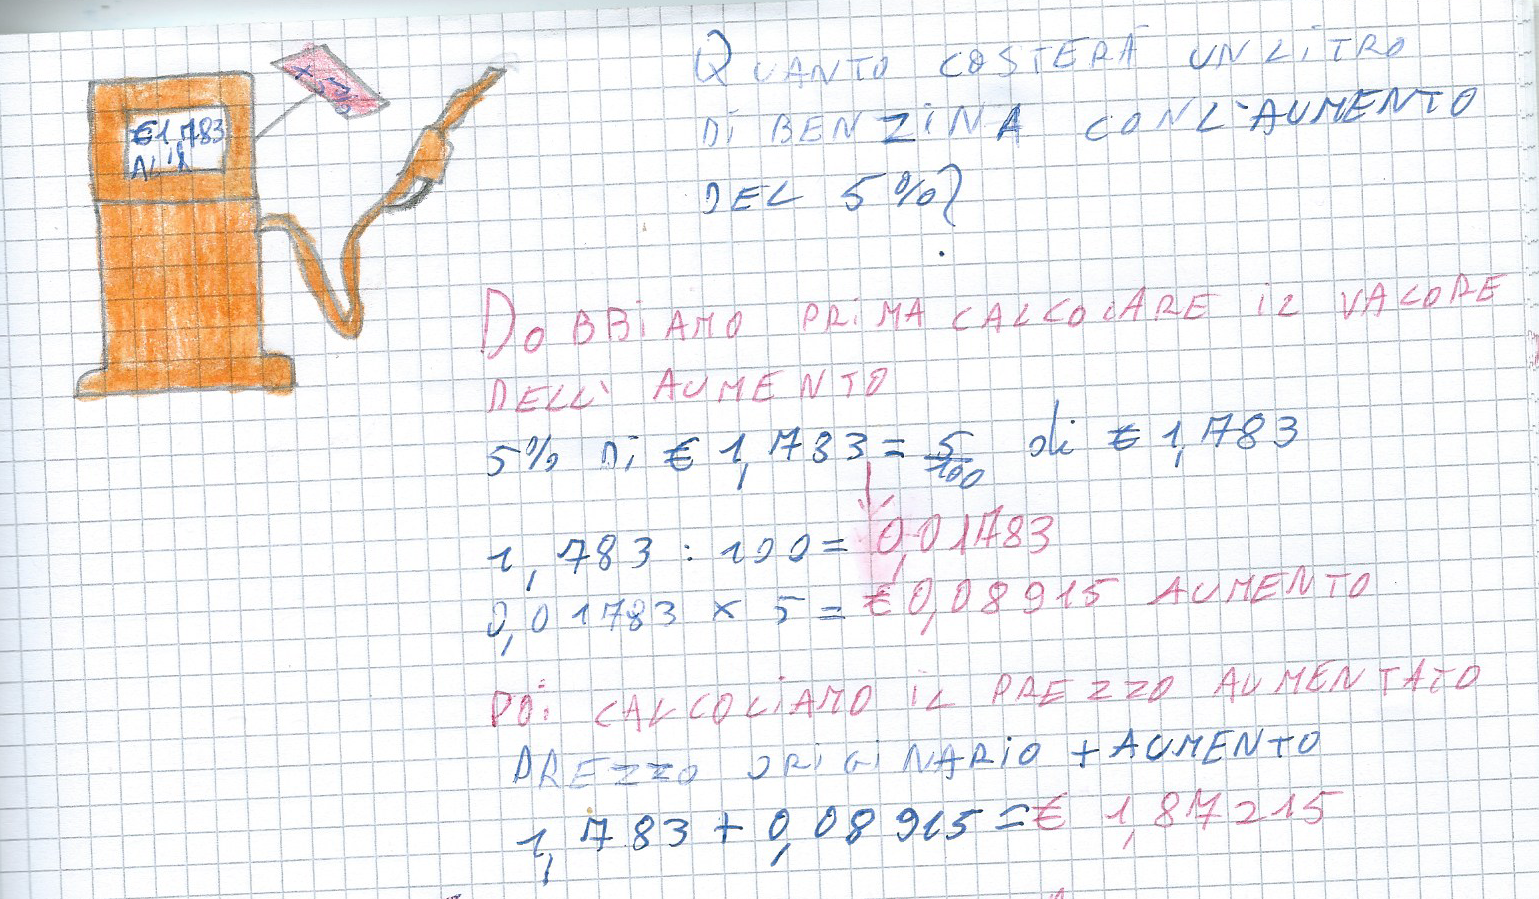 €1,783
AL l
+5%
QUANTO COSTERÀ UN LITRO
DI BENZINA CON L'AUMENTO
DEL 5%?
DOBBIAMO PRIMA CALCOLARE IL VALORE
DELL' AUMENTO
5% DI € 1,783 = 5/100 di € 1,783
1,783 : 100 = 0,01783
0,01783 x 5 = €0,08915 AUMENTO
POI CALCOLIAMO IL PREZZO AUMENTATO
PREZZO ORIGINARIO + AUMENTO
1,783 + 0,08915 = € 1,87215